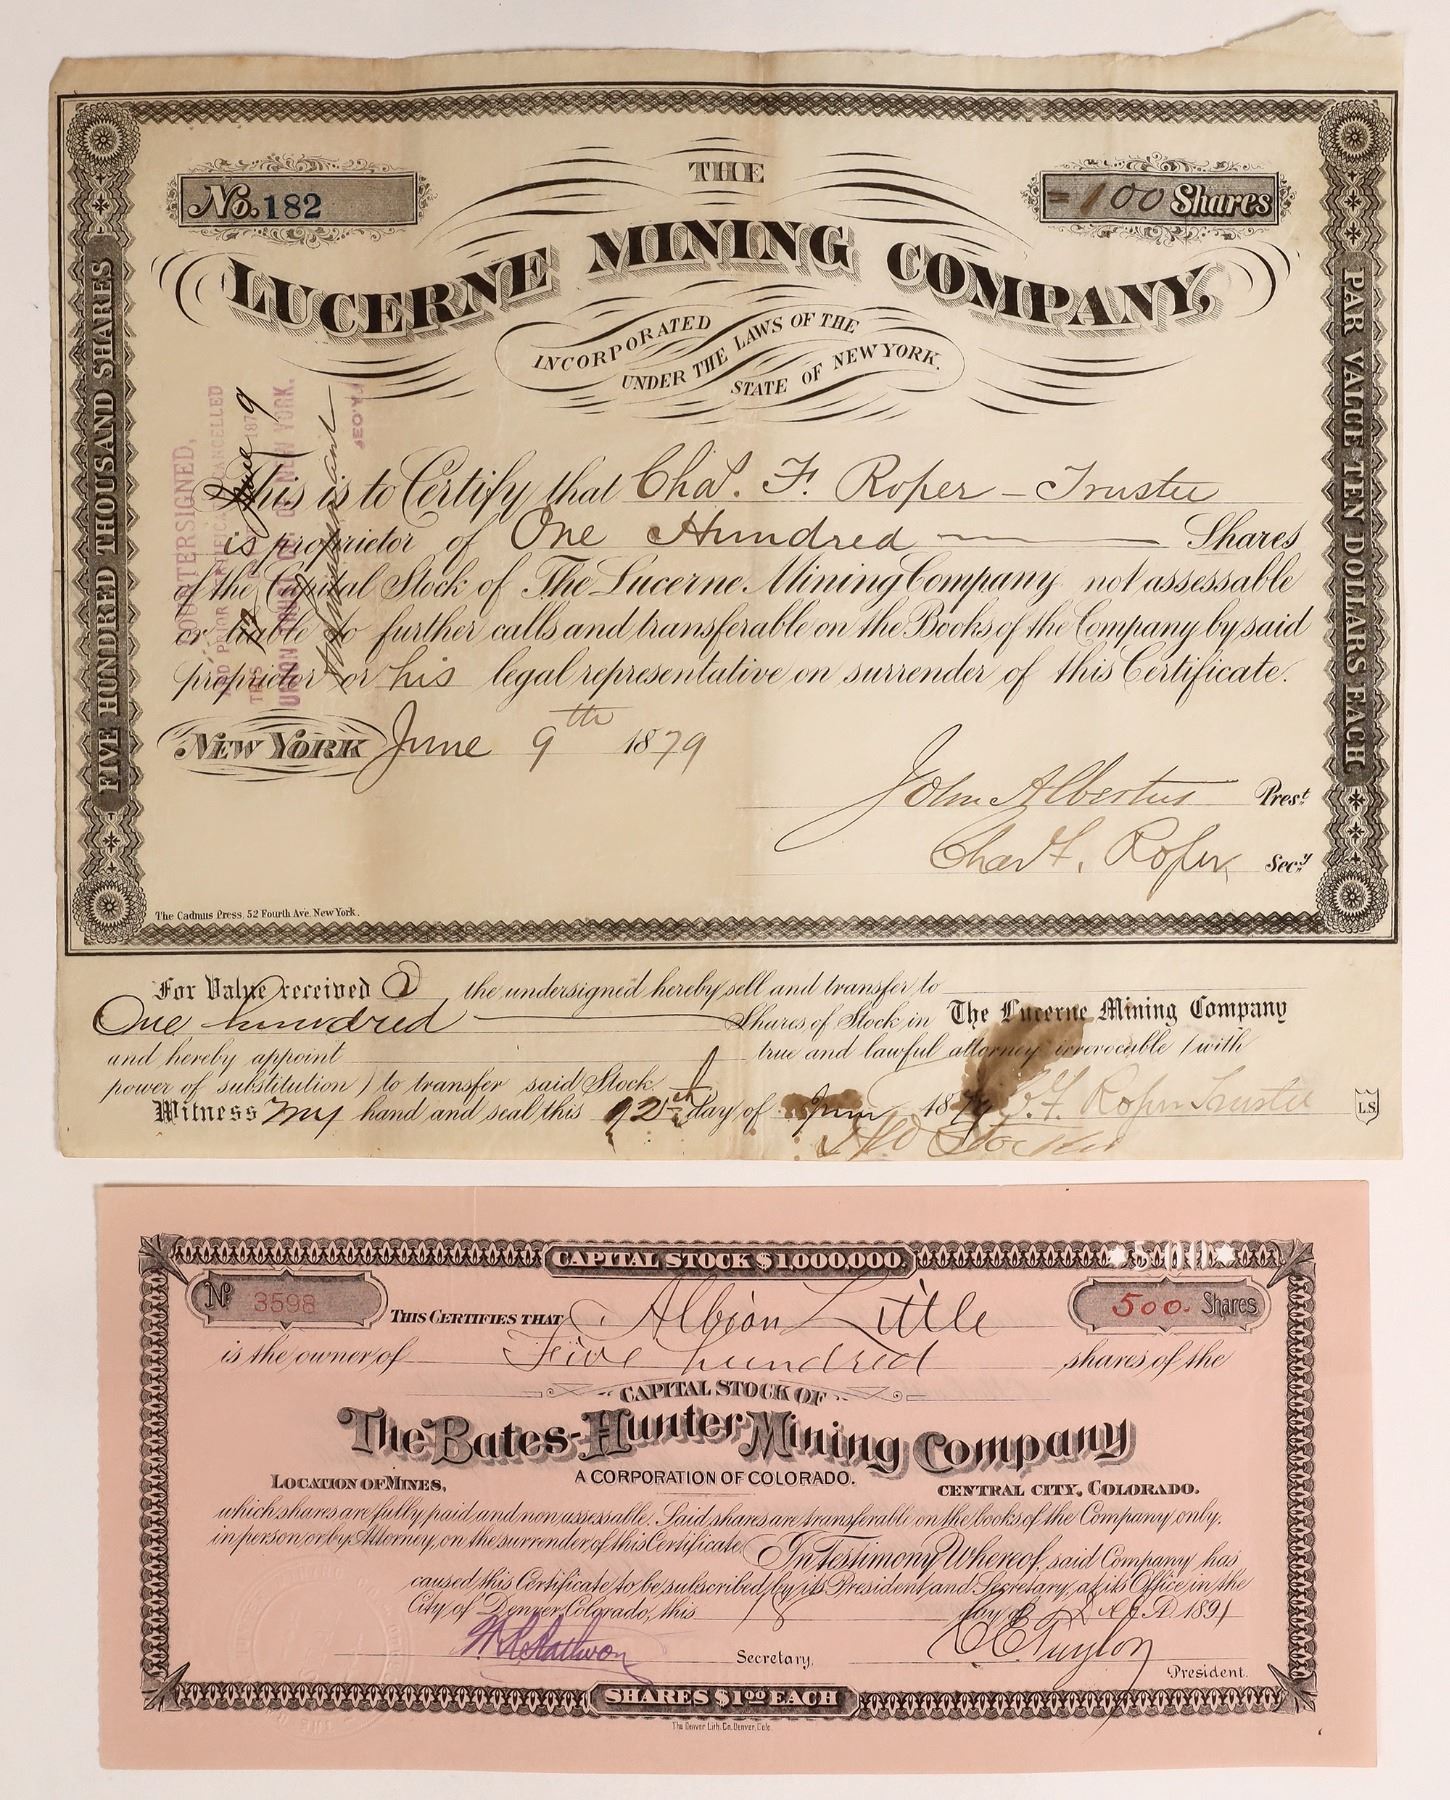 No. 182
THE
= 100 Shares
LUCERNE MINING COMPANY,
INCORPORATED
UNDER THE LAWS OF THE
STATE OF NEW YORK.
FIVE HUNDRED THOUSAND SHARES
PAR VALUE TEN DOLLARS EACH
COUNTERSIGNED,
AND PRIOR CERTIFICATE CANCELLED
THIS 12 June 1879
UNION TRUST CO. OF NEW YORK.
SEC'Y.
This is to Certify that Chas. F. Roper - Trustee
is proprietor of One Hundred Shares
of the Capital Stock of The Lucerne Mining Company not assessable
or liable to further calls and transferable on the Books of the Company by said
proprietor or his legal representative on surrender of this Certificate.
NEW YORK June 9th 1879
John Albertus Prest.
Chas F. Roper Secy.
The Cadmus Press, 52 Fourth Ave. New York.
For Value received I the undersigned hereby sell and transfer to
One hundred Shares of Stock in The Lucerne Mining Company
and hereby appoint true and lawful attorney irrevocable (with
power of substitution) to transfer said Stock
Witness my hand and seal this 12th day of June 1879 C. F. Roper Trustee
L.S.
CAPITAL STOCK $1,000,000.
*500*
No 3598
THIS CERTIFIES THAT Albion Little
500. Shares
is the owner of Five hundred shares of the
CAPITAL STOCK OF
The Bates-Hunter Mining Company
LOCATION OF MINES, A CORPORATION OF COLORADO. CENTRAL CITY, COLORADO.
which shares are fully paid and non assessable. Said shares are transferable on the books of the Company only,
in person or by Attorney, on the surrender of this Certificate. In Testimony Whereof, said Company has
caused this Certificate to be subscribed by its President and Secretary, at its Office in the
City of Denver, Colorado, this 18 day of A.D. 1891
Secretary.
President.
SHARES $1.00 EACH
The Denver Lith. Co. Denver, Colo.